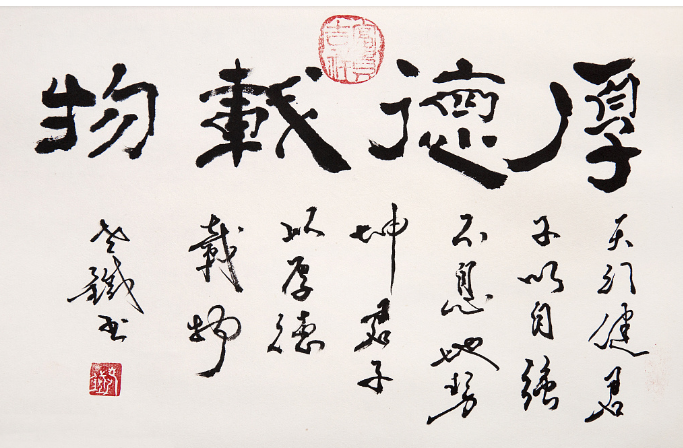 厚德載物
天行健君
子以自強
不息地勢
坤君子
以厚德
載物
老鐵书